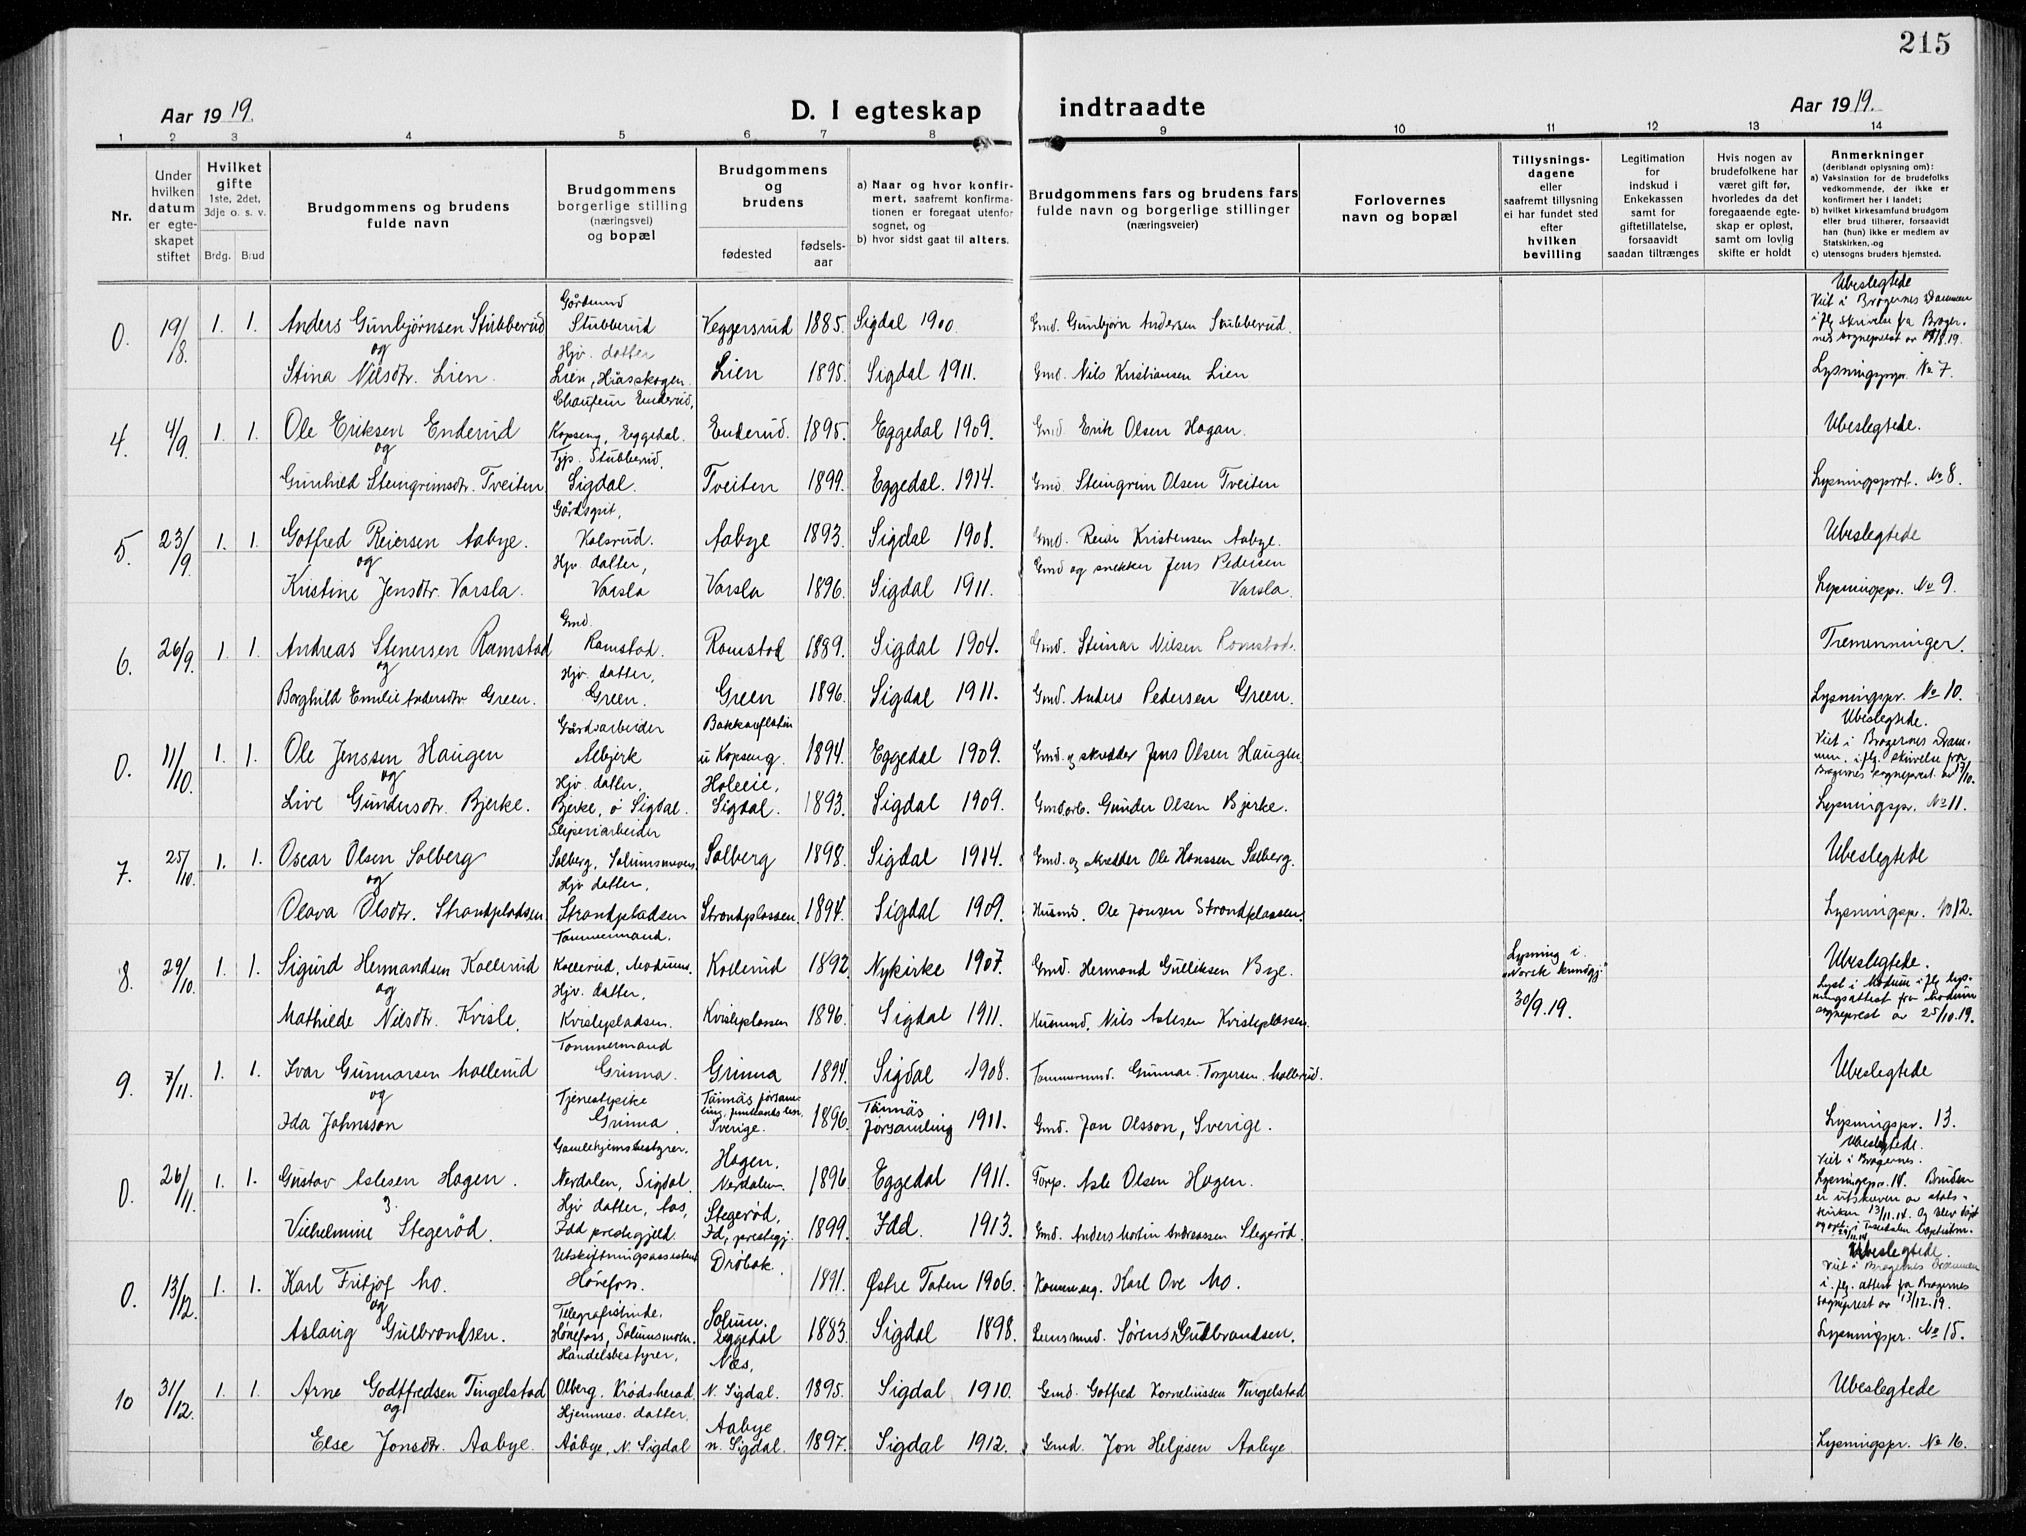 215
Aar 1919.
D. I egteskap indtraadte
Aar 1919.
1 2 3 4 5 6 7 8 9 10 11 12 13 14
Nr.
Under hvilken datum er egteskapet stiftet
Hvilket gifte 1ste, 2det, 3dje o. s. v.
Brdg. Brud
Brudgommens og brudens fulde navn
Brudgommens borgerlige stilling (næringsvei) og bopæl
Brudgommens og brudens
fødested
fødselsaar
a) Naar og hvor konfirmert, saafremt konfirmationen er foregaat utenfor sognet, og
b) hvor sidst gaat til alters.
Brudgommens fars og brudens fars fulde navn og borgerlige stillinger (næringsveier)
Forlovernes navn og bopæl
Tillysningsdagene eller saafremt tillysning ei har fundet sted efter hvilken bevilling
Legitimation for indskud i Enkekassen samt for giftetillatelse, forsaavidt saadan tiltrænges
Hvis nogen av brudefolkene har været gift før, hvorledes da det foregaaende egteskap er opløst, samt om lovlig skifte er holdt
Anmerkninger
(deriblandt oplysning om):
a) Vaksinstion for de brudefolks vedkommende, der ikke er konfirmert her i landet;
b) hvilket kirkesamfund brudgom eller brud tilhører, forsaavidt han (hun) ikke er medlem av Statskirken, og
c) utensogns bruders hjemsted.
0. 19/8. 1. 1. Anders Gunbjørnsen Stubberud Gårdmand Stubberud Veggersrud 1885. Sigdal 1900. Gmd. Gunbjørn Andersen Stubberud. Ubeslegtede Viet i Bragernes Drammen i flg skrivelse fra Bragernes sogneprest av 19/8.19.
og
Stina Nilsdtr. Lien. Hjv. datter Lien, Hiåsskogen. Lien 1895. Sigdal 1911. Gmd. Nils Kristiansen Lien Lysningspr. No 7.
4. 4/9. 1. 1. Ole Eriksen Enderud Chauføur Enderud, Kopseng, Eggedal. Enderud. 1895. Eggedal 1909. Gmd. Erik Olsen Hagan. Ubeslegtede.
og
Gunhild Steingrimsdtr. Tveiten Tjp. Stubberud, Sigdal. Tveiten 1899. Eggedal. 1914. Gmd. Steingrim Olsen Tveiten Lysningsprot. No 8.
5. 23/9. 1. 1. Gotfred Reiersen Aabye. Gårdsgut, Kolsrud. Aabye 1893. Sigdal 1908. Gmd. Reier Kristensen Aabye. Ubeslegtede
og
Kristine Jensdtr. Varsla. Hjv datter, Varsla Varsla 1896. Sigdal 1911. Gmd og snekker Jens Pedersen Varsla. Lysningspr. No 9.
6. 26/9. 1. 1. Andreas Stenersen Ramstad Gmd. Ramstad. Ramstad 1889. Sigdal 1904. Gmd. Steinar Nilsen Ramstad. Tremenninger.
og
Borghild Emilie Andersdtr. Green. Hjv. datter, Green. Green 1896. Sigdal 1911. Gmd. Anders Pedersen Green. Lysningspr. No 10.
0. 11/10. 1. 1. Ole Jenssen Haugen Gårdsarbeider Aebjerk u Kopseng. 1894. Eggedal 1909. Gmd. og skredder Jens Olsen Haugen Ubeslegtede. Viet i Bragernes Drammen. i flg. skrivelse fra Bragernes sogneprest av 17/10.
og
Live Gundersdtr. Bjerke. Hjv. datter, Bjerke, ø Sigdal. Holeie, Sigdal. 1893. Sigdal 1909. Gmd.arb. Gunder Olsen Bjerke. Lysningspr. No 11.
7. 25/10. 1. 1. Oscar Olsen Solberg Sliperiarbeider Solberg, Solumsmoen. Solberg 1898. Sigdal 1914. Gmd. og skredder Ole Hanssen Solberg. Ubeslegtede
og
Olava Olsdtr. Strandpladsen Hjv datter, Strandpladsen Strandplassen 1894. Sigdal 1909. Husmd. Ole Jonsen Strandplassen. Lysningspr. No 12.
8. 29/10. 1. 1. Sigurd Hermandsen Kollerud Tømmermand. Kollerud, Modum. Kollerud 1892. Nykirke 1907. Gmd. Hermand Gulliksen Bye. Lysning i "Norsk kundgj." 30/9.19. Ubeslegtede. Lyst i Modum i flg lysningsattest fra Modum sogneprest av 25/10.19.
og
Mathilde Nilsdtr. Kvisle. Hjv. datter, Kvislepladsen. Kvisleplassen 1896. Sigdal 1911. Husmd. Nils Aslesen Kvisleplassen.
9. 7/11. 1. 1. Ivar Gunnarsen Mollerud Tømmermand Grinna. Grinna 1894. Sigdal 1908. Tømmermd. Gunnar Torgersen Mollerud. Ubeslegtede
og
Ida Johnsson Tjenestepike Grinna. Tännäs forsamling, Jemtlands len. Sverige. 1896. Tännäs forsamling 1911. Gmd. Jon Olsson, Sverige. Lysningspr. 13.
0. 26/11. 1. 1. Gustav Aslesen Hagen. Gamlehjemsbestyrer, Nerdalen, Sigdal. Hagen. Nerdalen. 1896. Eggedal 1911. Torp. Asle Olsen Hagen. Ubeslegtede. Viet i Bragernes. Lysningspr. 14. Bruden er utskreven av statskirken 13/11.14.
Vilhelmine Stegerød. Hjv datter, Aas, Idd prestegjeld. Stegerød, Id, prestegj. 1899. Idd. 1913. Gmd. Anders Martin Andreassen Stegerød.
0. 13/12. 1. 1. Karl Fritjof Mo. Utskiftningsassistent Hønefoss. Drøbak. 1891. Østre Toten 1906. Karl Ove Mo. Ubeslegtede. Viet i Bragernes Drammen i flg. attest fra Bragernes sogneprest av 13/12.19.
og
Aslaug Gulbrandsen. Telegrafistinde. Hønefoss, Solumsmoen. Solum. Eggedal 1883. Sigdal 1898. Lensmd. Søren Gulbrandsen. Lysningspr. No 15.
10 31/12. 1. 1. Arne Godtfredsen Tingelstad Handelsbestyrer, Olberg. Krødsherad Næs, N. Sigdal. 1895. Sigdal 1910. Gmd. Gotfred Korneliussen Tingelstad Ubeslegtede
og
Else Jonsdtr. Aabye. Hjemmev. datter, Aabye, N. Sigdal Aabye n. Sigdal. 1897. Sigdal 1912. Gmd. Jon Helgesen Aabye. Lysningspr. No 16.